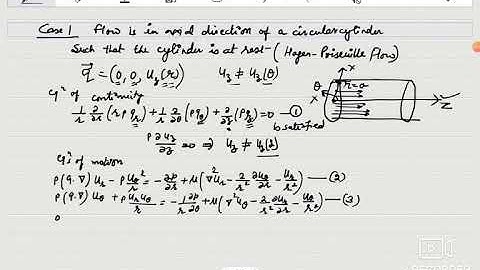 Case 1 Flow is in axial direction of a circular cylinder
Such that the cylinder is at rest - (Hagen-Poiseuille Flow)
q⃗ = (0, 0, u_z(r)) u_z ≠ u_z(θ)
θ x r=a
x z
Eqⁿ of continuity
1/r ∂/∂r (r ρ q_r) + 1/r ∂/∂θ (ρ q_θ) + ∂/∂z (ρ q_z) = 0 — ①
is satisfied
ρ ∂u_z/∂z = 0 ⇒ u_z ≠ u_z(z)
Eqⁿ of motion
ρ(q·∇) u_r - ρ u_θ²/r = -∂p/∂r + μ(∇²u_r - 2/r² ∂u_θ/∂θ - u_r/r²) — (2)
ρ(q·∇) u_θ + ρ u_r u_θ/r = -1/r ∂p/∂θ + μ(∇²u_θ - 2/r² ∂u_r/∂θ - u_θ/r²) — (3)